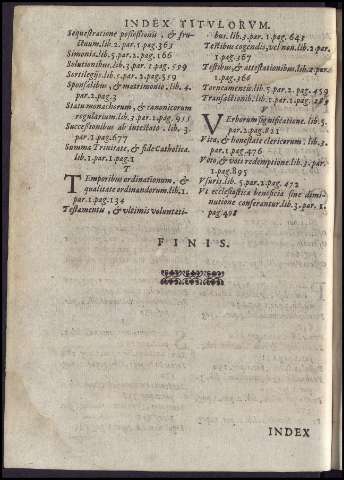 INDEX TITVLORVM.
Sequestratione possessionis, & fru-
ctuum.lib.2.par.1.pag.363
Simonia.lib.5.par.2.pag.166
Solutionibus.lib.3.par.1.pag.529
Sortilegijs.lib.5.par.2.pag.359
Sponsalibus, & matrimonio. lib.4.
par.2.pag.3
Statu monachorum, & canonicorum
regularium.lib.3.par.1.pag.955
Successionibus ab intestato. lib.3.
par.1.pag.677
Summa Trinitate, & fide Catholica.
lib.1.par.1.pag.1
T
TEmporibus ordinationum, &
qualitate ordinandorum.lib.1.
par.1.pag.134
Testamentis, & vltimis voluntati-
bus.lib.3.par.1.pag.643
Testibus cogendis, vel non.lib.2.par.
1.pag.367
Testibus, & attestationibus.lib.2.par.
1.pag.366
Torneamentis.lib.5.par.2.pag.459
Transactionib.lib.1.par.1.pag.
V
VErborum significatione.lib.5.
par.2.pag.821
Vita, & honestate clericorum. lib.3.
par.1.pag.476
Voto, & voti redemptione.lib.3.par.
1.pag.895
Vsuris.lib.5.par.2.pag.472
Vt ecclesiastica beneficia sine dimi-
nutione conferantur.lib.3.par.1.
pag.498
FINIS.
INDEX